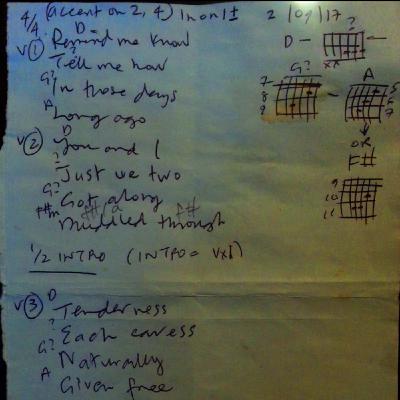 4/4 (accent on 2, 4) In on 1± 2/09/17
V① D Remind me know
? Tell me how
G? In those days
A Long ago
V② D You and I
? Just we two
G? Got along
F#m F#/A F# Muddled through
1/2 INTRO (INTRO = Vx1)
V③ D Tenderness
? Each caress
G? Naturally
A Given free
D – ?
xx
G? – A
7
8
9
5
6
7
OR
F#
9
10
11